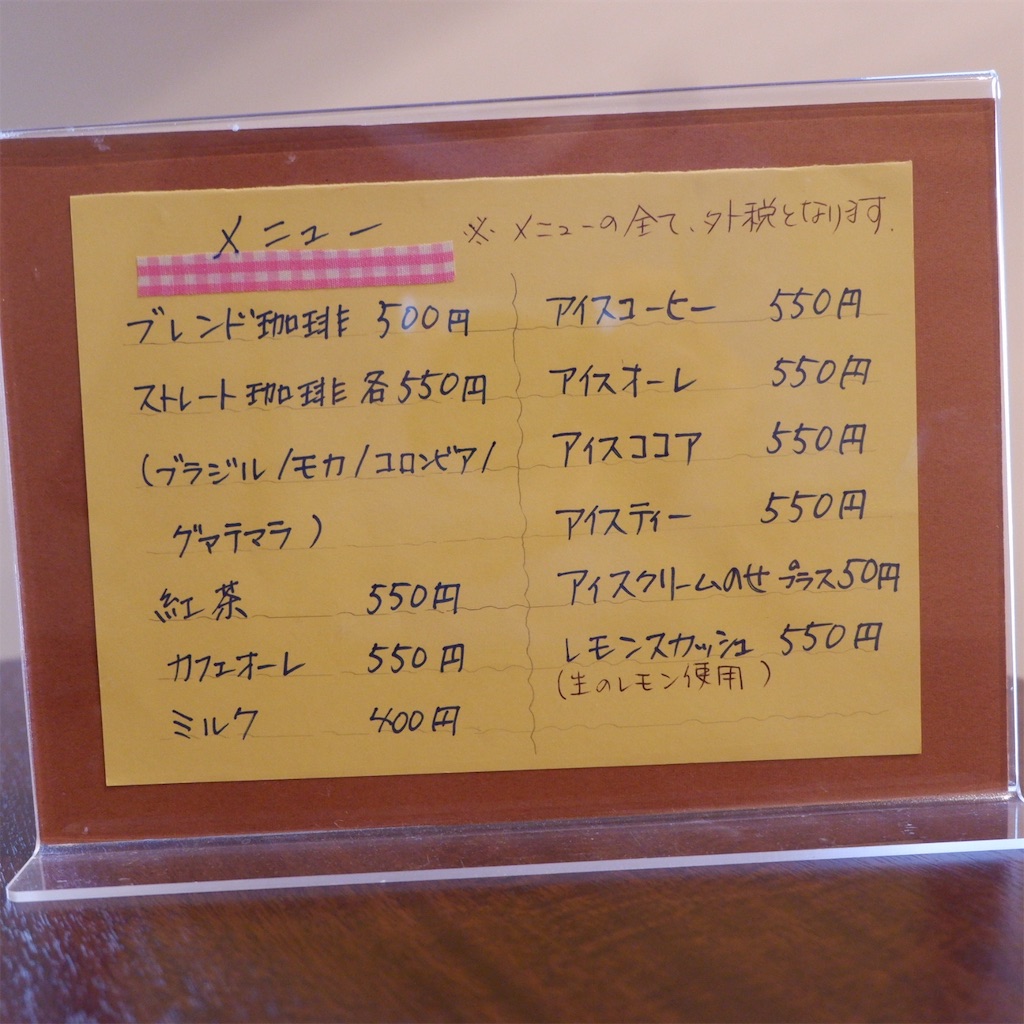 メニュー
※ メニューの全て、外税となります.
ブレンド珈琲 500円
ストレート珈琲 各550円
(ブラジル/モカ/コロンビア/
グマテマラ)
紅茶 550円
カフェオーレ 550円
ミルク 400円
アイスコーヒー 550円
アイスオーレ 550円
アイスココア 550円
アイスティー 550円
アイスクリームのせ プラス50円
レモンスカッシュ 550円
(生のレモン使用)